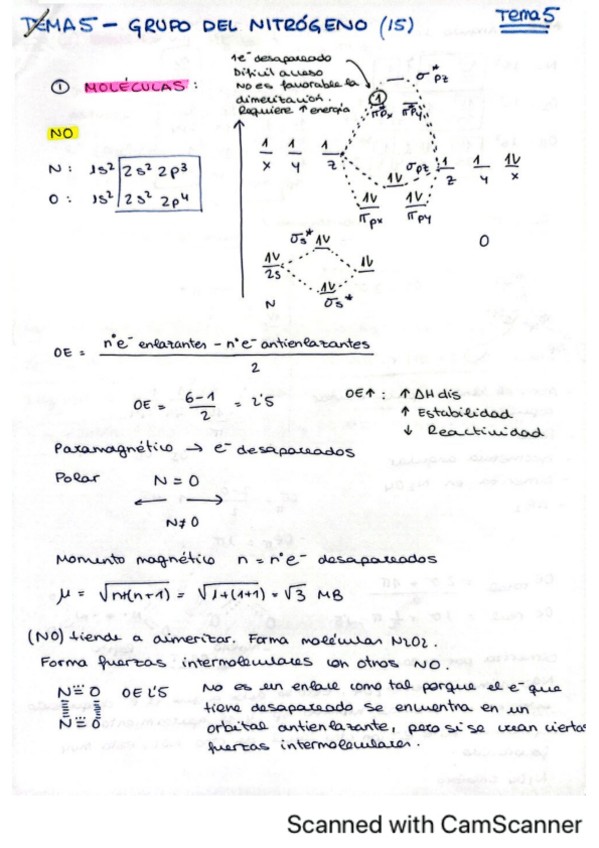 TEMA 5 - GRUPO DEL NITRÓGENO (15)
Tema 5
① MOLÉCULAS :
1e⁻ desapareado
Difícil acceso
No es favorable la
dimerización.
Requiere ↑ energía
σ*pz
1
π*px π*py
NO
N : 1s² 2s² 2p³
O : 1s² 2s² 2p⁴
1 1 1
x y z
σpz
1 1 1V
z y x
1V
1V 1V
πpx πpy
O
σs* 1V
1V
2s
1V
1V
N
σs*
OE = nºe⁻ enlazantes - nºe⁻ antienlazantes
2
OE = 6-1 = 2'5
2
OE↑ : ↑ ΔH dis
↑ Estabilidad
↓ Reactividad
Paramagnético → e⁻ desapareados
Polar N = O
N≠O
Momento magnético n = nºe⁻ desapareados
μ = √n+(n+1) = √1+(1+1) = √3 MB
(NO) tiende a dimerizar. Forma molécular N₂O₂.
Forma fuerzas intermoleculares con otros NO.
N O OE 1'5
N O
No es un enlace como tal porque el e⁻ que
tiene desapareado se encuentra en un
orbital antienlazante, pero si se crean ciertas
fuerzas intermoleculares.
Scanned with CamScanner